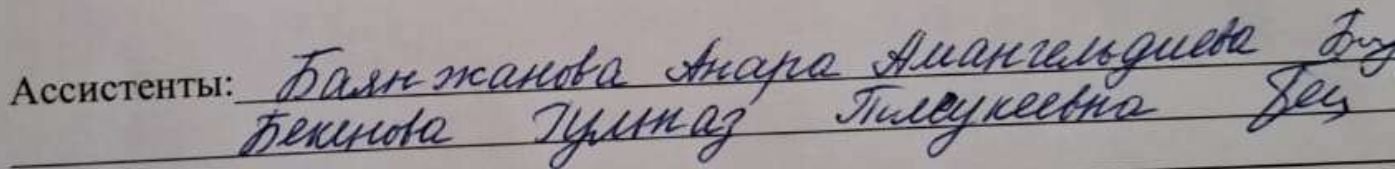 Ассистенты: Баянжанова Анара Амангельдиева
Бекенова Гулназ Тлеукеевна